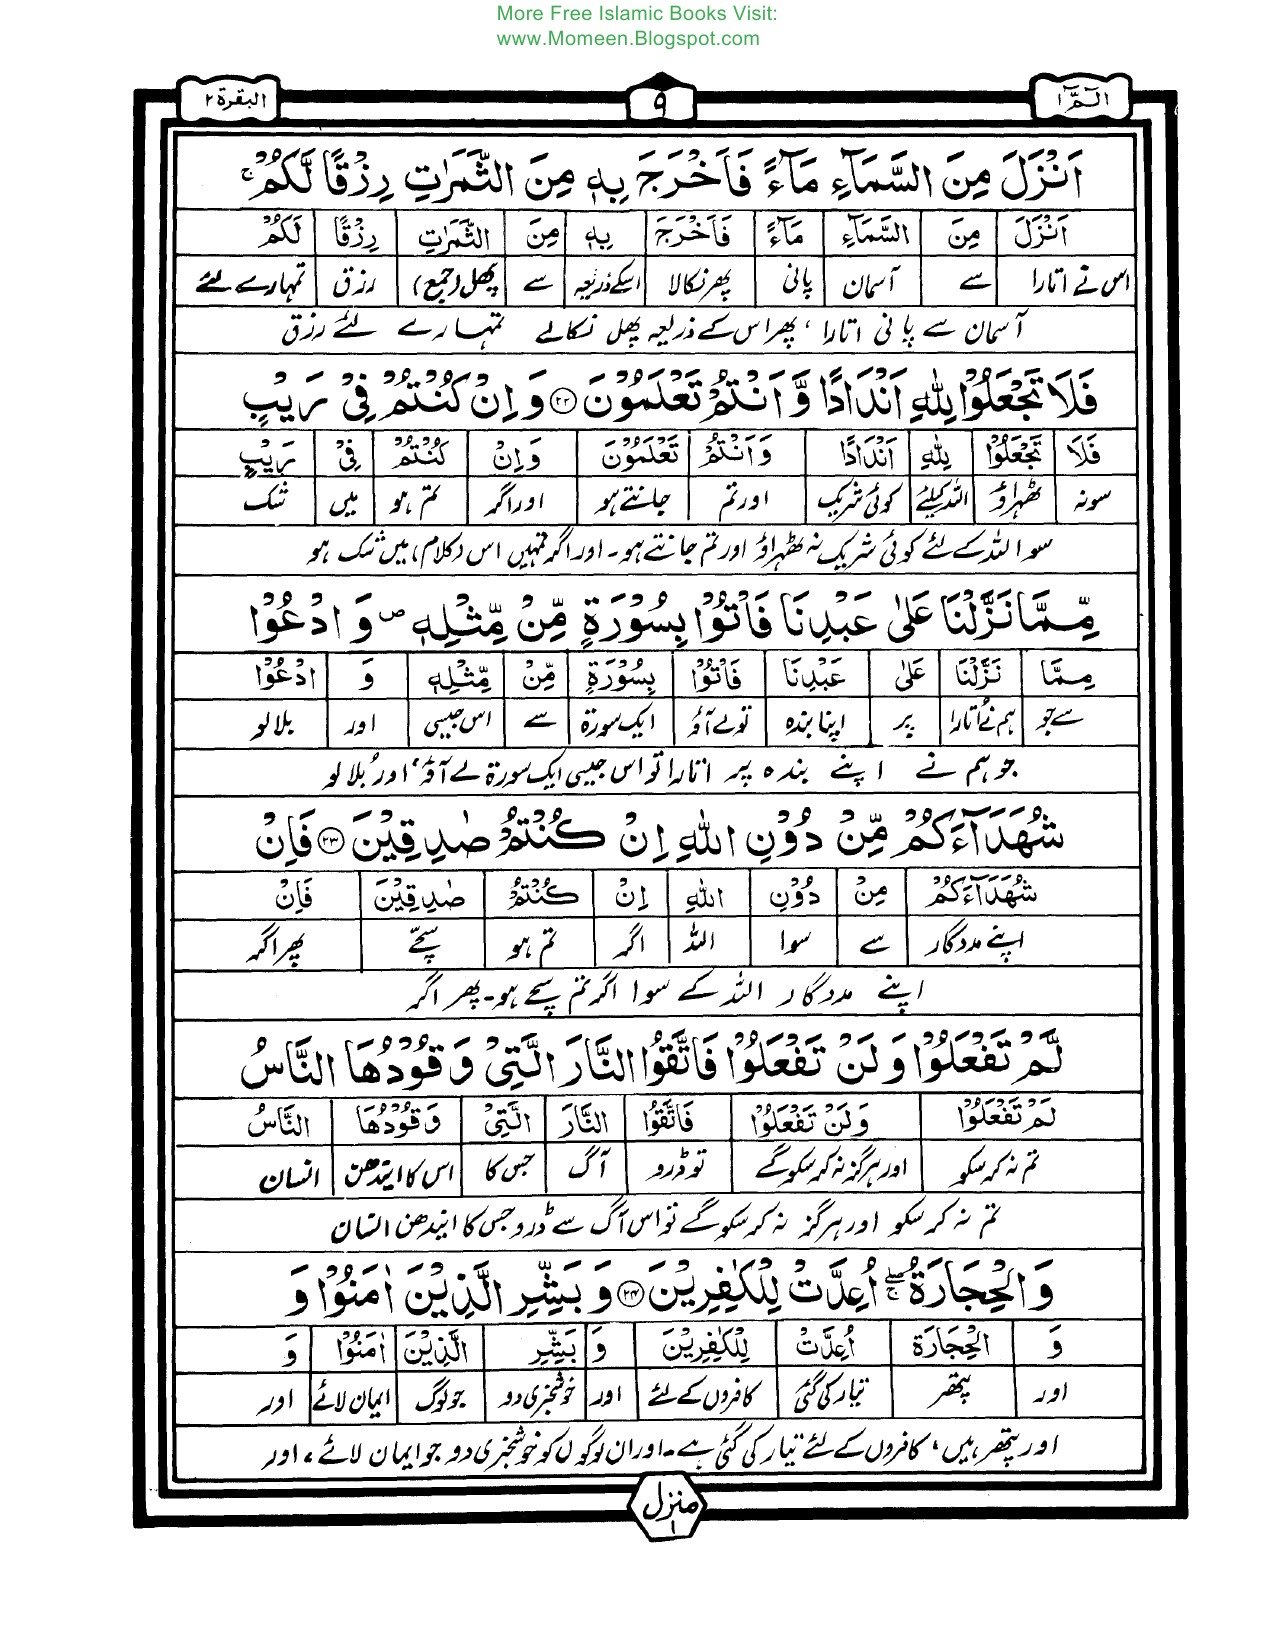 More Free Islamic Books Visit:
www.Momeen.Blogspot.com
الٓمّٓ ۱ ۹ البقرة ۲
اَنْزَلَ مِنَ السَّمَآءِ مَآءً فَاَخْرَجَ بِهٖ مِنَ الثَّمَرٰتِ رِزْقًا لَّكُمْ ۚ
اَنْزَلَ مِنَ السَّمَآءِ مَآءً فَاَخْرَجَ بِهٖ مِنَ الثَّمَرٰتِ رِزْقًا لَكُمْ
اس نے اتارا سے آسمان پانی پھر نکالا اسکے ذریعہ سے پھل (جمع) رزق تمہارے لئے
آسمان سے پانی اتارا ، پھر اس کے ذریعہ پھل نکالے تمہارے لئے رزق
فَلَا تَجْعَلُوْا لِلّٰهِ اَنْدَادًا وَّ اَنْتُمْ تَعْلَمُوْنَ ۲۲ وَ اِنْ كُنْتُمْ فِیْ رَیْبٍ
فَلَا تَجْعَلُوْا لِلّٰهِ اَنْدَادًا وَاَنْتُمْ تَعْلَمُوْنَ وَاِنْ كُنْتُمْ فِیْ رَیْبٍ
سو نہ ٹھہراؤ اللہ کیلئے کوئی شریک اور تم جانتے ہو اور اگر تم ہو میں شک
سو اللہ کے لئے کوئی شریک نہ ٹھہراؤ اور تم جانتے ہو ۔ اور اگر تمہیں اس (کلام) میں شک ہو
مِّمَّا نَزَّلْنَا عَلٰی عَبْدِنَا فَاْتُوْا بِسُوْرَةٍ مِّنْ مِّثْلِهٖ ص وَ ادْعُوْا
مِمَّا نَزَّلْنَا عَلٰی عَبْدِنَا فَاْتُوْا بِسُوْرَةٍ مِّنْ مِّثْلِهٖ وَ ادْعُوْا
سے جو ہم نے اتارا پر اپنا بندہ تو لے آؤ ایک سورۃ سے اس جیسی اور بلا لو
جو ہم نے اپنے بندہ پر اتارا تو اس جیسی ایک سورۃ لے آؤ ، اور بُلا لو
شُهَدَآءَكُمْ مِّنْ دُوْنِ اللّٰهِ اِنْ كُنْتُمْ صٰدِقِیْنَ ۲۳ فَاِنْ
شُهَدَآءَكُمْ مِنْ دُوْنِ اللّٰهِ اِنْ كُنْتُمْ صٰدِقِیْنَ فَاِنْ
اپنے مددگار سے سوا اللہ اگر تم ہو سچے پھر اگر
اپنے مددگار اللہ کے سوا اگر تم سچے ہو ۔ پھر اگر
لَّمْ تَفْعَلُوْا وَ لَنْ تَفْعَلُوْا فَاتَّقُوا النَّارَ الَّتِیْ وَقُوْدُهَا النَّاسُ
لَمْ تَفْعَلُوْا وَلَنْ تَفْعَلُوْا فَاتَّقُوْا النَّارَ الَّتِیْ وَقُوْدُهَا النَّاسُ
تم نہ کر سکو اور ہرگز نہ کر سکو گے تو ڈرو آگ جس کا اس کا ایندھن انسان
تم نہ کر سکو اور ہرگز نہ کر سکو گے تو اس آگ سے ڈرو جس کا ایندھن انسان
وَ الْحِجَارَةُ ۚ اُعِدَّتْ لِلْكٰفِرِیْنَ ۲۴ وَ بَشِّرِ الَّذِیْنَ اٰمَنُوْا وَ
وَ الْحِجَارَةُ اُعِدَّتْ لِلْكٰفِرِیْنَ وَ بَشِّرِ الَّذِیْنَ اٰمَنُوْا وَ
اور پتھر تیار کی گئی کافروں کے لئے اور خوشخبری دو جو لوگ ایمان لائے اور
اور پتھر ہیں ، کافروں کے لئے تیار کی گئی ہے ۔ اور ان لوگوں کو خوشخبری دو جو ایمان لائے ، اور
منزل ۱